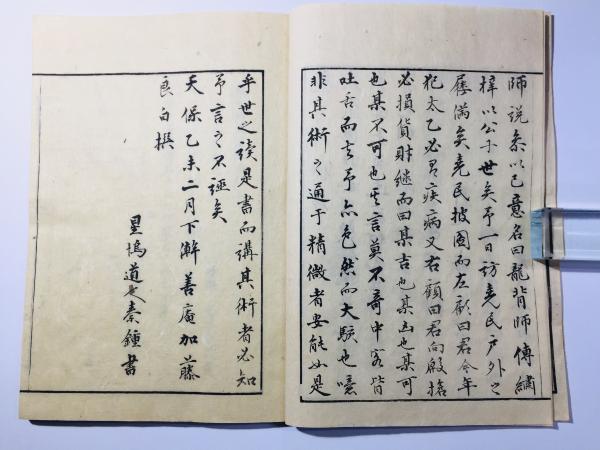 師説条以己意名曰龍背師傳繡
梓以公于世矣予一日訪堯民戸外之
屨滿矣堯民披圖而左顧曰君今年
犯太乙必有疾病又右顧曰君向殿
必損貨財継而曰某吉也某凶也某可
也某不可也其言莫不奇中客皆
吐舌而去予亦色然而大駭也噫
非其術之通于精微者安能如是
乎世之読是書而講其術者必知
予言之不誣矣
天保乙未二月下澣善庵加藤
良白撰
星塢道人秦鍾書